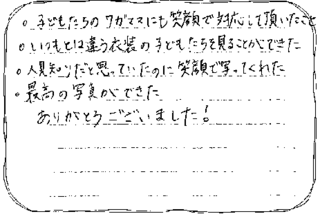 。子どもたちのワガママにも笑顔で対応して頂いたこと
。いつもとは違う衣装の子どもたちを見ることができた
。人見知りだと思っていたのに笑顔で写ってくれた
。最高の写真ができた
ありがとうございました!